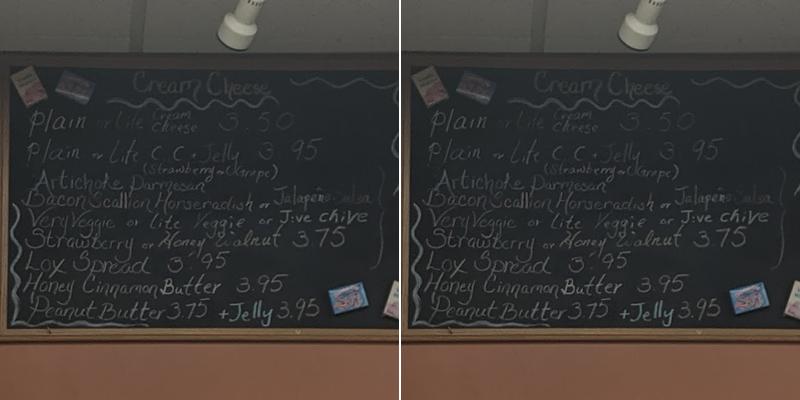 Cream Cheese
Plain or Lite Cream cheese 3.50
Plain or Lite C.C + Jelly 3.95
(Strawberry or Grape)
Artichoke Parmesan
Bacon Scallion Horseradish or Jalapeño Salsa
Very Veggie or Lite Veggie or J:ve chive
Strawberry or Honey Walnut 3.75
Lox Spread 3.95
Honey Cinnamon Butter 3.95
Peanut Butter 3.75 +Jelly 3.95
Cream Cheese
Plain or Lite Cream cheese 3.50
Plain or Lite C.C + Jelly 3.95
(Strawberry or Grape)
Artichoke Parmesan
Bacon Scallion Horseradish or Jalapeño Salsa
Very Veggie or Lite Veggie or J:ve chive
Strawberry or Honey Walnut 3.75
Lox Spread 3.95
Honey Cinnamon Butter 3.95
Peanut Butter 3.75 +Jelly 3.95